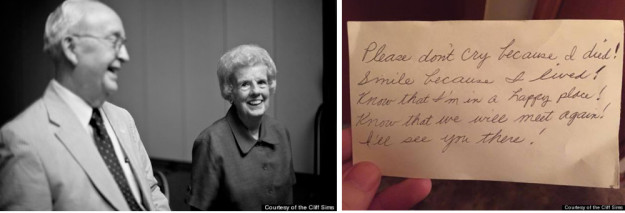 Please don't cry because I died!
Smile because I lived!
Know that I'm in a happy place!
Know that we will meet again!
I'll see you there!
Courtesy of the Cliff Sims
Courtesy of the Cliff Sims